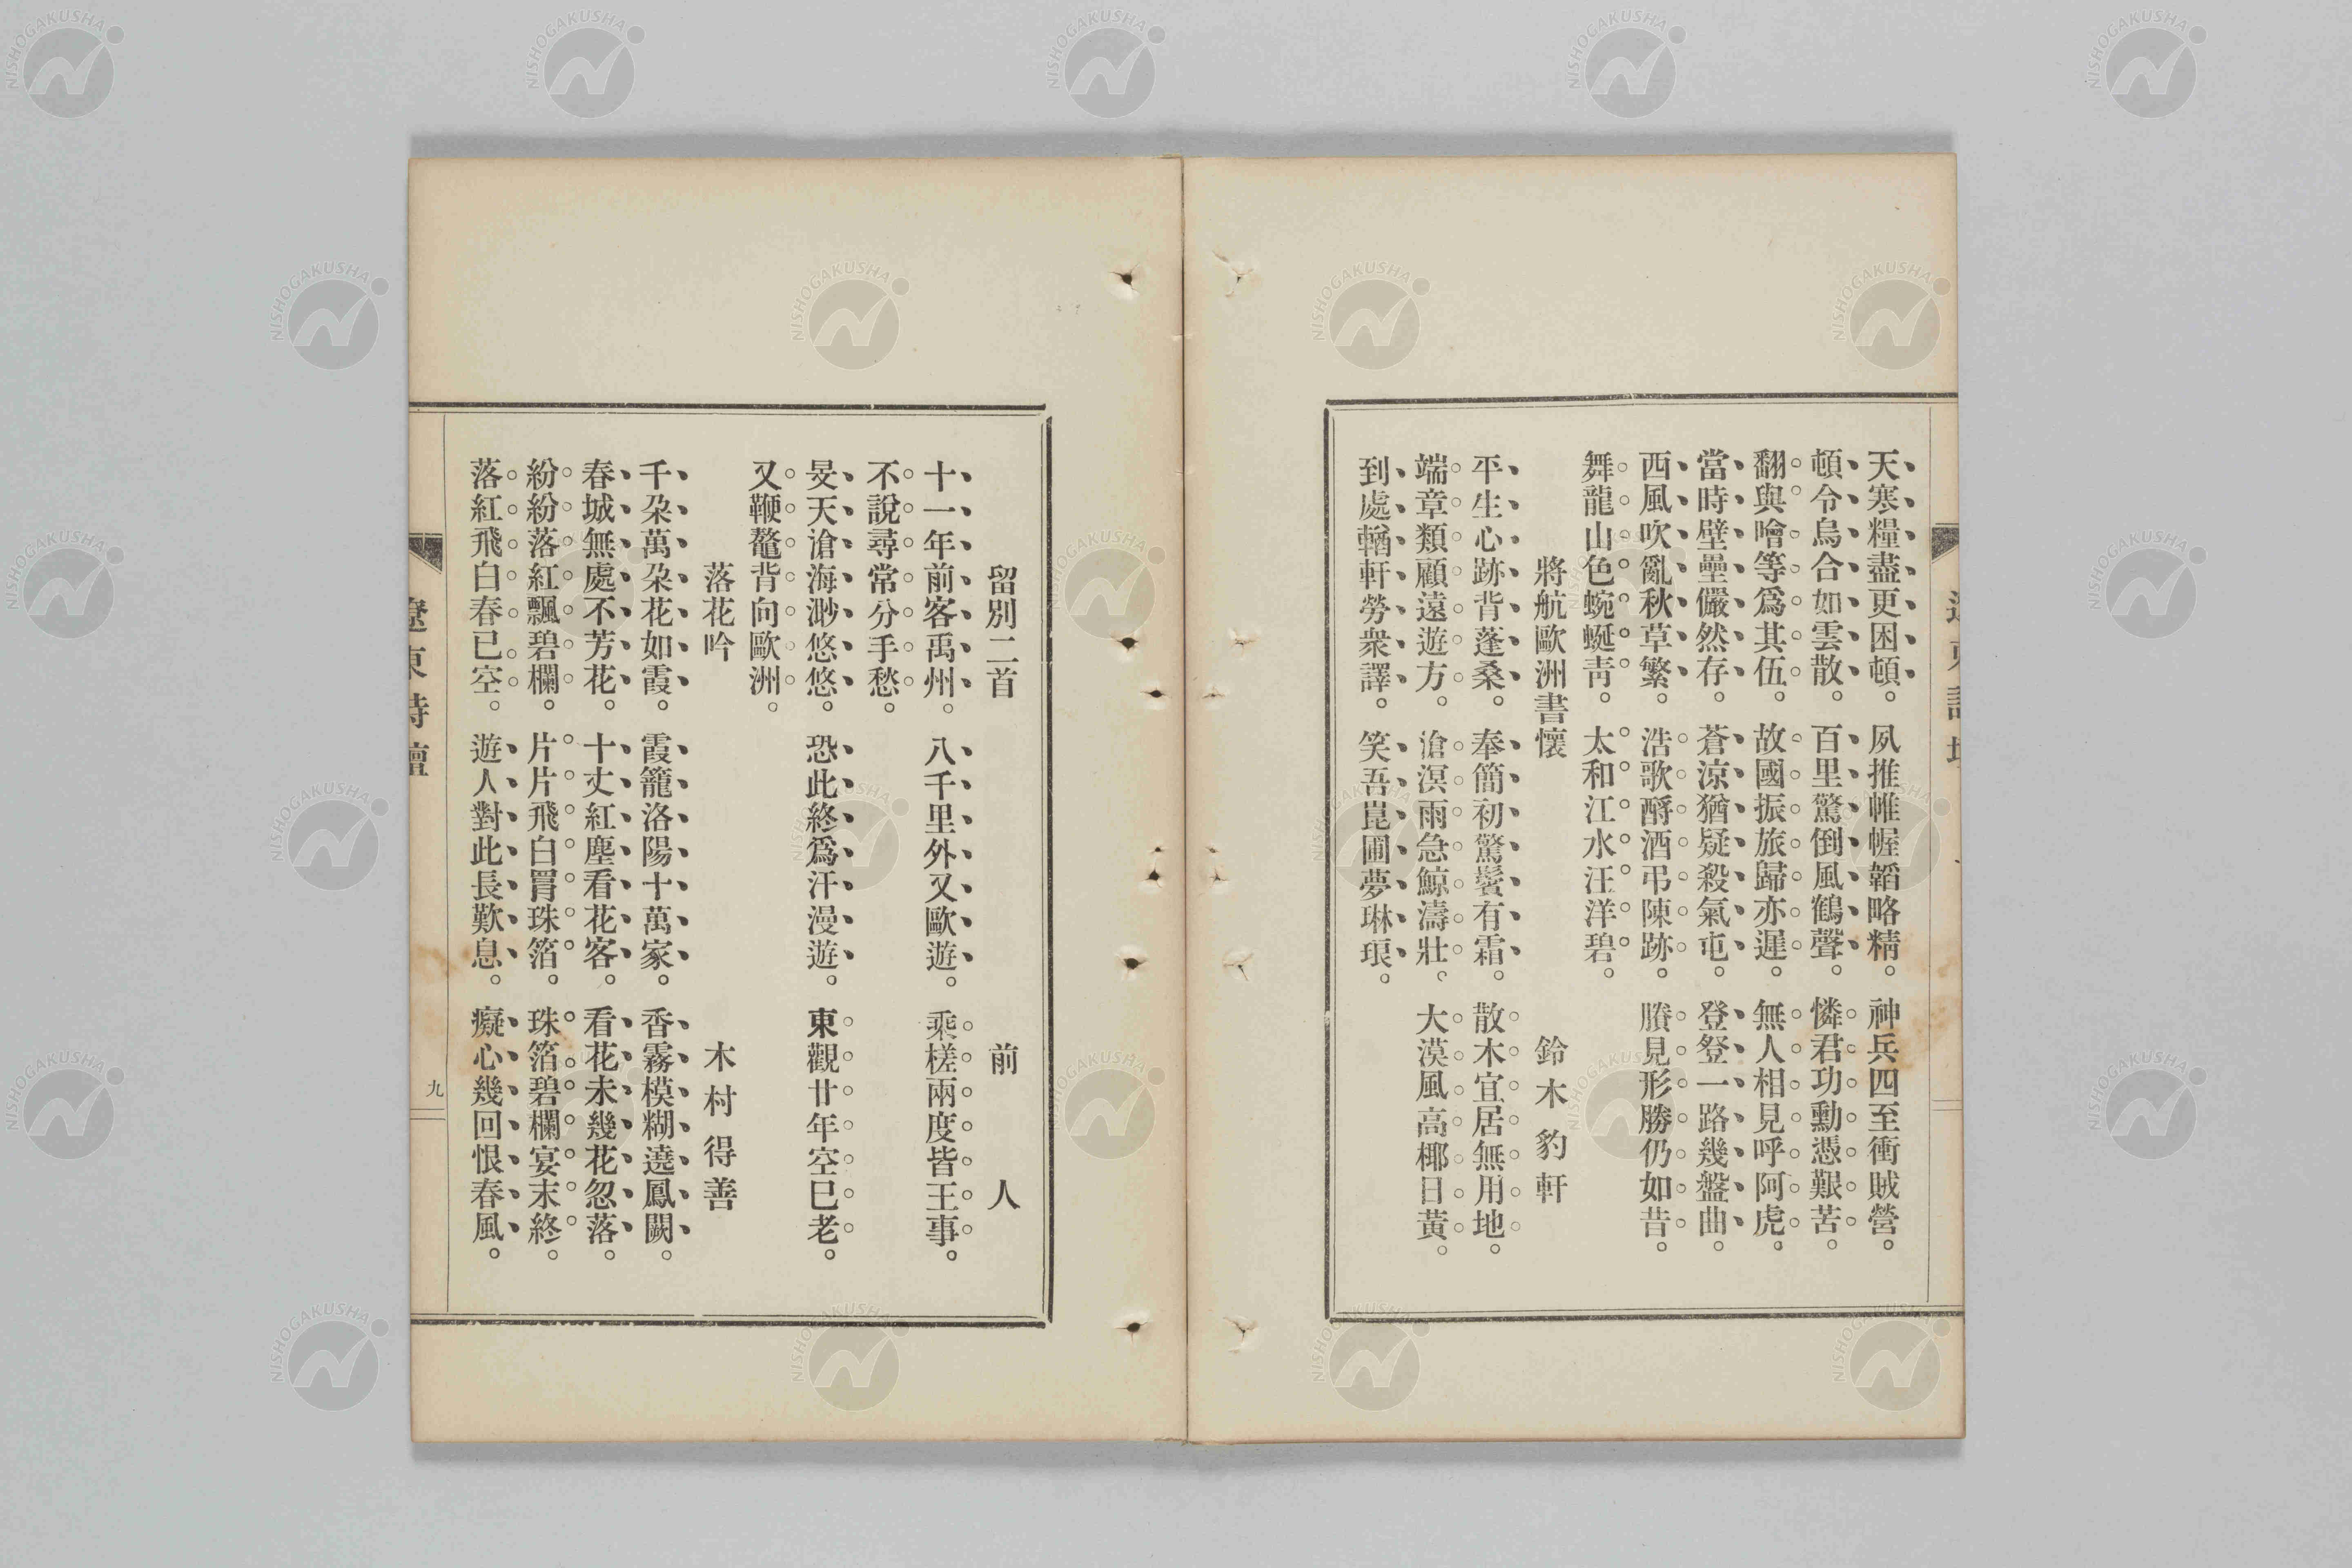 天寒糧盡更困頓。夙推帷幄韜略精。神兵四至衝賊營。
頓令烏合如雲散。百里驚倒風鶴聲。憐君功勳憑艱苦。
翻與噲等爲其伍。故國振旅歸亦遲。無人相見呼阿虎。
當時壁壘儼然存。蒼涼猶疑殺氣屯。登登一路幾盤曲。
西風吹亂秋草繁。浩歌酹酒弔陳跡。賸見形勝仍如昔。
舞龍山色蜿蜒靑。太和江水汪洋碧。
將航歐洲書懷　鈴木豹軒
平生心跡背蓬桑。奉簡初驚鬢有霜。散木宜居無用地。
端章類顧遠遊方。滄溟雨急鯨濤壯。大漠風高椰日黃。
到處輶軒勞衆譯。笑吾崑圃夢琳琅。
留別二首　前人
十一年前客禹州。八千里外又歐遊。乘槎兩度皆王事。
不說尋常分手愁。
旻天滄海渺悠悠。恐此終爲汗漫遊。東觀廿年空已老。
又鞭鼇背向歐洲。
落花吟　木村得善
千朶萬朶花如霞。霞籠洛陽十萬家。香霧模糊遶鳳闕。
春城無處不芳花。十丈紅塵看花客。看花未幾花忽落。
紛紛落紅飄碧欄。片片飛白罥珠箔。珠箔碧欄宴未終。
落紅飛白春已空。遊人對此長歎息。癡心幾回恨春風。
遼東詩壇
九
NISHOGAKUSHA